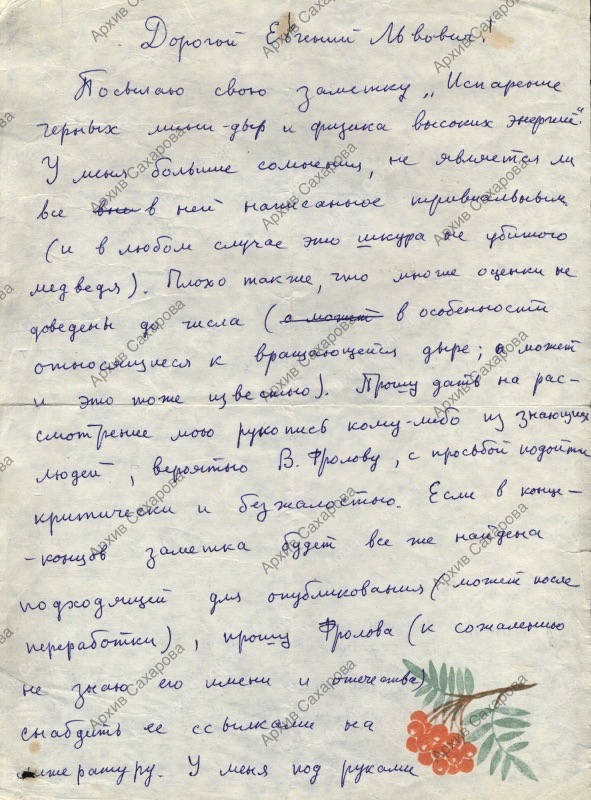 Дорогой Евгений Львович!
Посылаю свою заметку „Испарение
черных мини-дыр и физика высоких энергий".
У меня большие сомнения, не является ли
все в ней написанное тривиальным
(и в любом случае это шкура не убитого
медведя). Плохо также, что многие оценки не
доведены до числа (а может в особенности
относящиеся к вращающейся дыре; а может
и это тоже известно). Прошу дать на рас-
смотрение мою рукопись кому-либо из знающих
людей, вероятно В. Фролову, с просьбой подойти
критически и безжалостно. Если в конце-
-концов заметка будет все же найдена
подходящей для опубликования (может после
переработки), прошу Фролова (к сожалению
не знаю его имени и отчества)
снабдить ее ссылками на
литературу. У меня под руками
Архив Сахарова